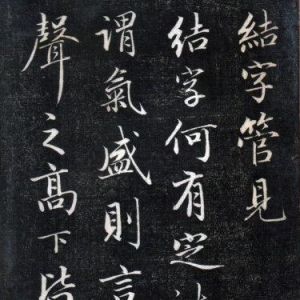 結字管見
結字何有定法
謂氣盛則言
聲之高下皆